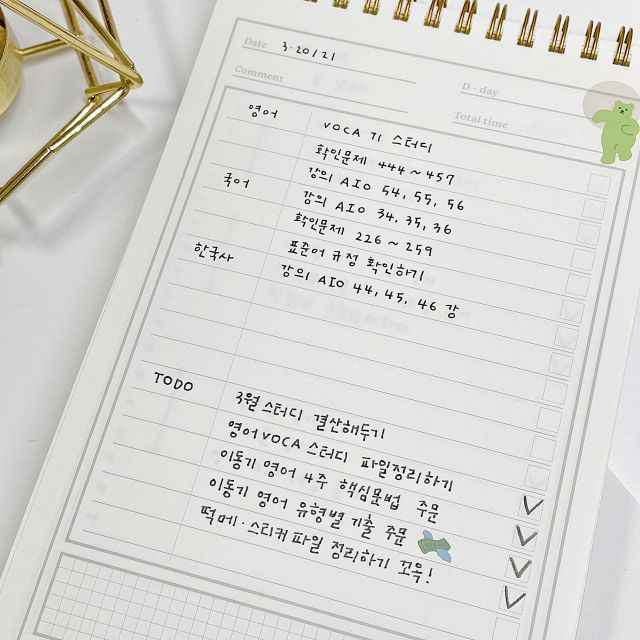 Date 3·20/21
D - day
Comment
Total time
영어 VOCA 71 스터디
확인문제 444~457
강의 AIO 54, 55, 56
국어 강의 AIO 34, 35, 36
확인문제 226~259
표준어 규정 확인하기
한국사 강의 AIO 44, 45, 46 강
TODO 3월 스터디 결산해두기
영어 VOCA 스터디 파일정리하기
이동기 영어 4주 핵심문법 주문
이동기 영어 유형별 기출 주문
떡메·스티커 파일 정리하기 꼬옥!